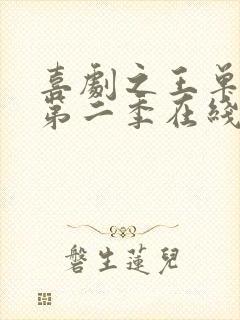 喜劇之王单
第二季在綫
磐生蓮兒